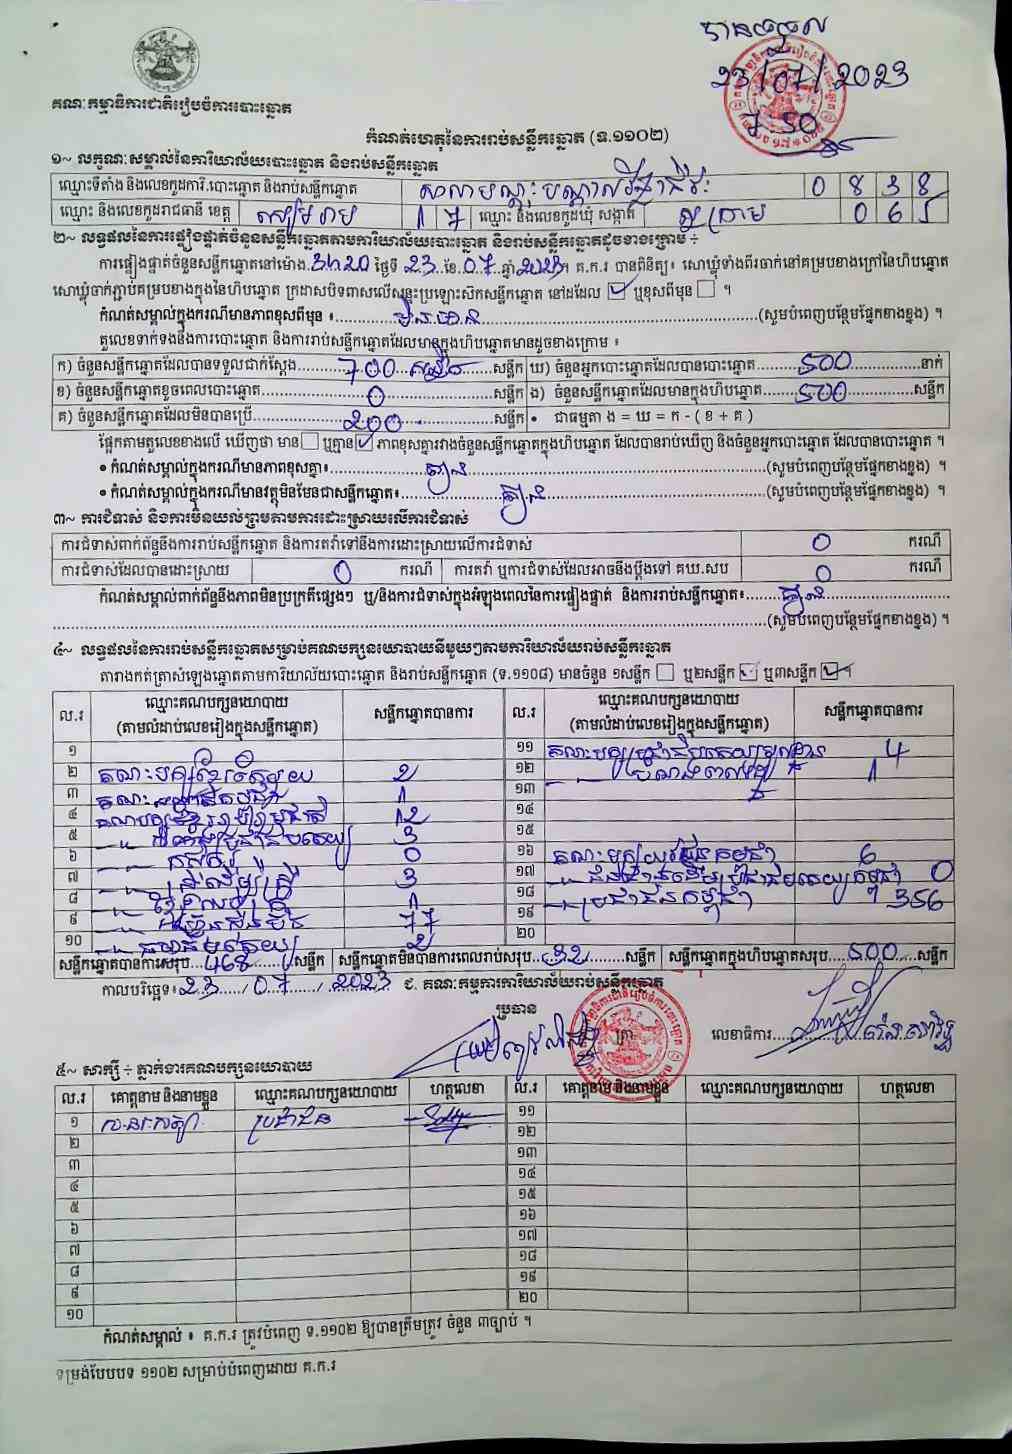 បានចូល
23/07/2023
7:50
គណៈកម្មាធិការជាតិរៀបចំការបោះឆ្នោត
កំណត់ហេតុនៃការរាប់សន្លឹកឆ្នោត (ទ.១១០២)
១~ លក្ខណៈសម្គាល់នៃការិយាល័យបោះឆ្នោត និងរាប់សន្លឹកឆ្នោត
ឈ្មោះទីតាំង និងលេខកូដការិ.បោះឆ្នោត និងរាប់សន្លឹកឆ្នោត 0 8 3 8
ឈ្មោះ និងលេខកូដរាជធានី ខេត្ត សៀមរាប 1 7 ឈ្មោះ និងលេខកូដឃុំ សង្កាត់ ស្លក្រាម 0 6 5
២~ លទ្ធផលនៃការផ្ទៀងផ្ទាត់ចំនួនសន្លឹកឆ្នោតតាមការិយាល័យបោះឆ្នោត និងរាប់សន្លឹកឆ្នោតដូចខាងក្រោម ÷
ការផ្ទៀងផ្ទាត់ចំនួនសន្លឹកឆ្នោតនៅម៉ោង 3h20 ថ្ងៃទី 23 ខែ 07 ឆ្នាំ 2023។ គ.ក.រ បានពិនិត្យ៖ សោឃ្លុំទាំងពីរចាក់នៅគម្របខាងក្រៅនៃហិបឆ្នោត
សោឃ្លុំចាក់ភ្ជាប់គម្របខាងក្នុងនៃហិបឆ្នោត ក្រដាសបិទពាសលើសន្ទះប្រឡោះស៊កសន្លឹកឆ្នោត នៅដដែល ☑ ឬខុសពីមុន ☐ ។
កំណត់សម្គាល់ក្នុងករណីមានភាពខុសពីមុន ៖ មិនមាន (សូមបំពេញបន្ថែមផ្នែកខាងខ្នង) ។
តួលេខទាក់ទងនឹងការបោះឆ្នោត និងការរាប់សន្លឹកឆ្នោតដែលមានក្នុងហិបឆ្នោតមានដូចខាងក្រោម ៖
ក) ចំនួនសន្លឹកឆ្នោតដែលបានទទួលជាក់ស្តែង 700 សន្លឹក ឃ) ចំនួនអ្នកបោះឆ្នោតដែលបានបោះឆ្នោត 500 នាក់
ខ) ចំនួនសន្លឹកឆ្នោតខូចពេលបោះឆ្នោត 0 សន្លឹក ង) ចំនួនសន្លឹកឆ្នោតដែលមានក្នុងហិបឆ្នោត 500 សន្លឹក
គ) ចំនួនសន្លឹកឆ្នោតដែលមិនបានប្រើ 200 សន្លឹក • ជាធម្មតា ង = ឃ = ក - ( ខ + គ )
ផ្អែកតាមតួលេខខាងលើ ឃើញថា មាន ☐ ឬគ្មាន ☑ ភាពខុសគ្នារវាងចំនួនសន្លឹកឆ្នោតក្នុងហិបឆ្នោត ដែលបានរាប់ឃើញ និងចំនួនអ្នកបោះឆ្នោត ដែលបានបោះឆ្នោត ។
• កំណត់សម្គាល់ក្នុងករណីមានភាពខុសគ្នា៖ គ្មាន (សូមបំពេញបន្ថែមផ្នែកខាងខ្នង) ។
• កំណត់សម្គាល់ក្នុងករណីមានវត្ថុមិនមែនជាសន្លឹកឆ្នោត៖ គ្មាន (សូមបំពេញបន្ថែមផ្នែកខាងខ្នង) ។
៣~ ការជំទាស់ និងការមិនយល់ព្រមតាមការដោះស្រាយលើការជំទាស់
ការជំទាស់ពាក់ព័ន្ធនឹងការរាប់សន្លឹកឆ្នោត និងការតវ៉ាទៅនឹងការដោះស្រាយលើការជំទាស់ 0 ករណី
ការជំទាស់ដែលបានដោះស្រាយ 0 ករណី ការតវ៉ា ឬការជំទាស់ដែលអាចនឹងប្តឹងទៅ គឃ.សប 0 ករណី
កំណត់សម្គាល់ពាក់ព័ន្ធនឹងភាពមិនប្រក្រតីផ្សេងៗ ឬ/និងការជំទាស់ក្នុងអំឡុងពេលនៃការផ្ទៀងផ្ទាត់ និងការរាប់សន្លឹកឆ្នោត៖ គ្មាន
(សូមបំពេញបន្ថែមផ្នែកខាងខ្នង) ។
៤~ លទ្ធផលនៃការរាប់សន្លឹកឆ្នោតសម្រាប់គណបក្សនយោបាយនីមួយៗតាមការិយាល័យរាប់សន្លឹកឆ្នោត
តារាងកត់ត្រាសំឡេងឆ្នោតតាមការិយាល័យបោះឆ្នោត និងរាប់សន្លឹកឆ្នោត (ទ.១១០៨) មានចំនួន ១សន្លឹក ☐ ឬ២សន្លឹក ឬ៣សន្លឹក ☑ ។
ល.រ ឈ្មោះគណបក្សនយោបាយ (តាមលំដាប់លេខរៀងក្នុងសន្លឹកឆ្នោត) សន្លឹកឆ្នោតបានការ ល.រ ឈ្មោះគណបក្សនយោបាយ (តាមលំដាប់លេខរៀងក្នុងសន្លឹកឆ្នោត) សន្លឹកឆ្នោតបានការ
១ ១១ 4
២ 2 ១២ 1
៣ 1 ១៣
៤ 12 ១៤
៥ 3 ១៥
៦ 0 ១៦ 6
៧ 3 ១៧ 0
៨ 1 ១៨ ប្រជាជនកម្ពុជា 356
៩ 77 ១៩
១០ 2 ២០
សន្លឹកឆ្នោតបានការសរុប 468 សន្លឹក សន្លឹកឆ្នោតមិនបានការពេលរាប់សរុប 32 សន្លឹក សន្លឹកឆ្នោតក្នុងហិបឆ្នោតសរុប 500 សន្លឹក
កាលបរិច្ឆេទ៖ 23/07/2023 ជ. គណៈកម្មការការិយាល័យរាប់សន្លឹកឆ្នោត
ប្រធាន
ត្រា
លេខាធិការ
៥~ សាក្សី ÷ ភ្នាក់ងារគណបក្សនយោបាយ
ល.រ គោត្តនាម និងនាមខ្លួន ឈ្មោះគណបក្សនយោបាយ ហត្ថលេខា ល.រ គោត្តនាម និងនាមខ្លួន ឈ្មោះគណបក្សនយោបាយ ហត្ថលេខា
១ ប្រជាជន ១១
២ ១២
៣ ១៣
៤ ១៤
៥ ១៥
៦ ១៦
៧ ១៧
៨ ១៨
៩ ១៩
១០ ២០
កំណត់សម្គាល់ ៖ គ.ក.រ ត្រូវបំពេញ ទ.១១០២ ឱ្យបានត្រឹមត្រូវ ចំនួន ៣ច្បាប់ ។
ទម្រង់បែបបទ ១១០២ សម្រាប់បំពេញដោយ គ.ក.រ